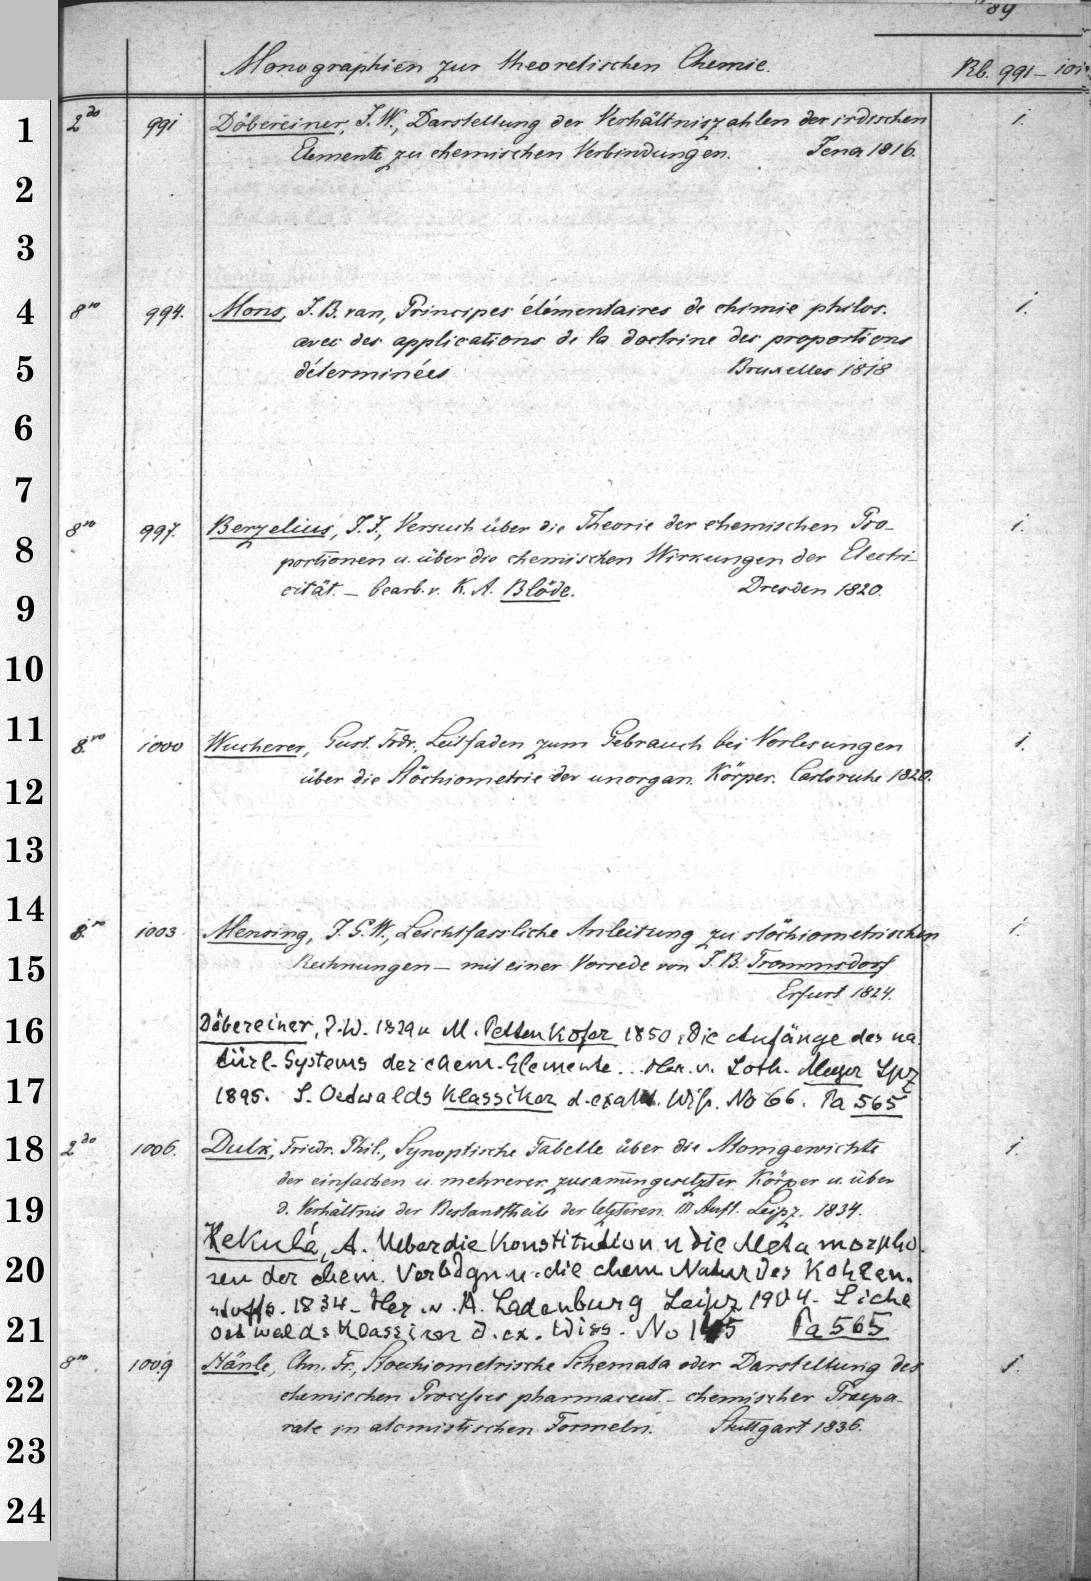 89
Monographien zur theoretischen Chemie. Rb. 991–
1 2do 991 Döbereiner, J. W., Darstellung der Verhältniszahlen der irdischen 1.
Elemente zu chemischen Verbindungen. Jena 1816.
2
3
4 8vo 994. Mons, J. B. van, Principes élémentaires de chimie philos. 1.
avec des applications de la doctrine des proportions
5 déterminées Bruxelles 1818
6
7
8vo 997. Berzelius, J. J., Versuch über die Theorie der chemischen Pro- 1.
8 portionen u. über die chemischen Wirkungen der Electri-
9 cität. – bearb. v. K. A. Blöde. Dresden 1820.
10
11 8vo 1000 Wucherer, Gust. Frdr., Leitfaden zum Gebrauch bei Vorlesungen 1.
12 über die Stöchiometrie der unorgan. Körper. Carlsruhe 1820.
13
14 8vo 1003. Mensing, J. G. W., Leichtfassliche Anleitung zu stöchiometrischen 1.
15 Rechnungen – mit einer Vorrede von J. B. Trommsdorf
Erfurt 1824.
16 Döbereiner, J. W. 1829 u M. Pettenkofer 1850, Die Anfänge des na
türl. Systems der chem. Elemente... Her. v. Loth. Meyer Lpz
17 1895. S. Ostwalds Klassiker d. exakt. Wiß. No 66. Pa 565
18 2do 1006. Dulk, Friedr. Phil., Synoptische Tabelle über die Atomgewichte 1.
der einfachen u. mehrerer zusammengesetzter Körper u. über
19 d. Verhältnis der Bestandtheile der letzteren. III Aufl. Leipz. 1834.
Kekulé, A. Ueber die Konstitution u die Metamorpho-
20 sen der chem. Verbdgn u. die chem Natur des Kohlen-
stoffs. 1834– Her. v. A. Ladenburg Leipz 1904.
21 Ostwalds Klassiker d. ex. Wiss. No 145 Pa 565
8vo 1009 Hänle, Chn. Fr., Stoechiometrische Schemata oder Darstellung des 1.
22 chemischen Processes pharmaceut.-chemischer Praepa-
23 rate in atomistischen Formeln. Stuttgart 1836.
24